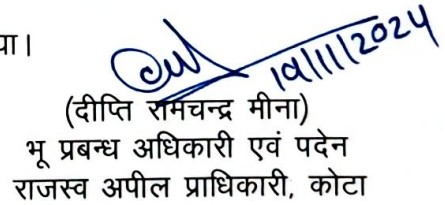 पा।
19/11/2024
(दीप्ति रामचन्द्र मीना)
भू प्रबन्ध अधिकारी एवं पदेन
राजस्व अपील प्राधिकारी, कोटा